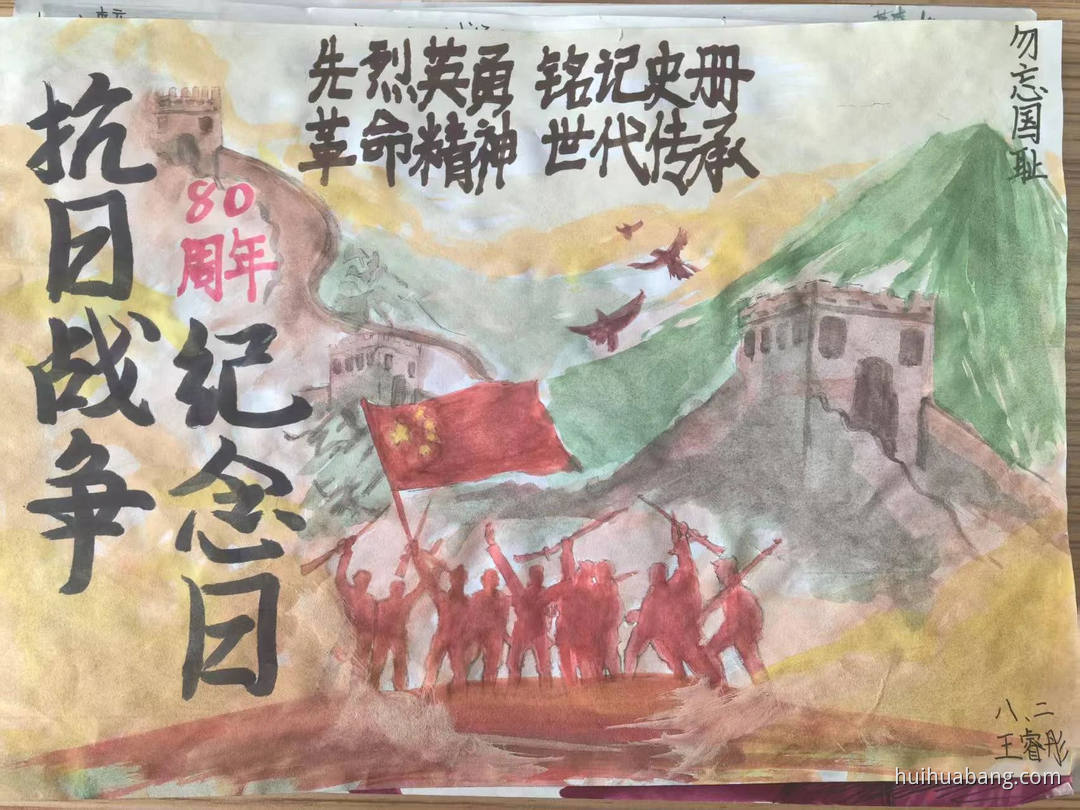 先烈英勇 铭记史册
革命精神 世代传承
勿忘国耻
抗日战争
80
周年
纪念日
八、二
王睿彤
huihuabang.com